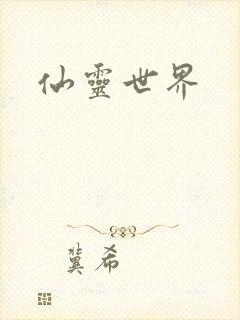 仙靈世界
冀希